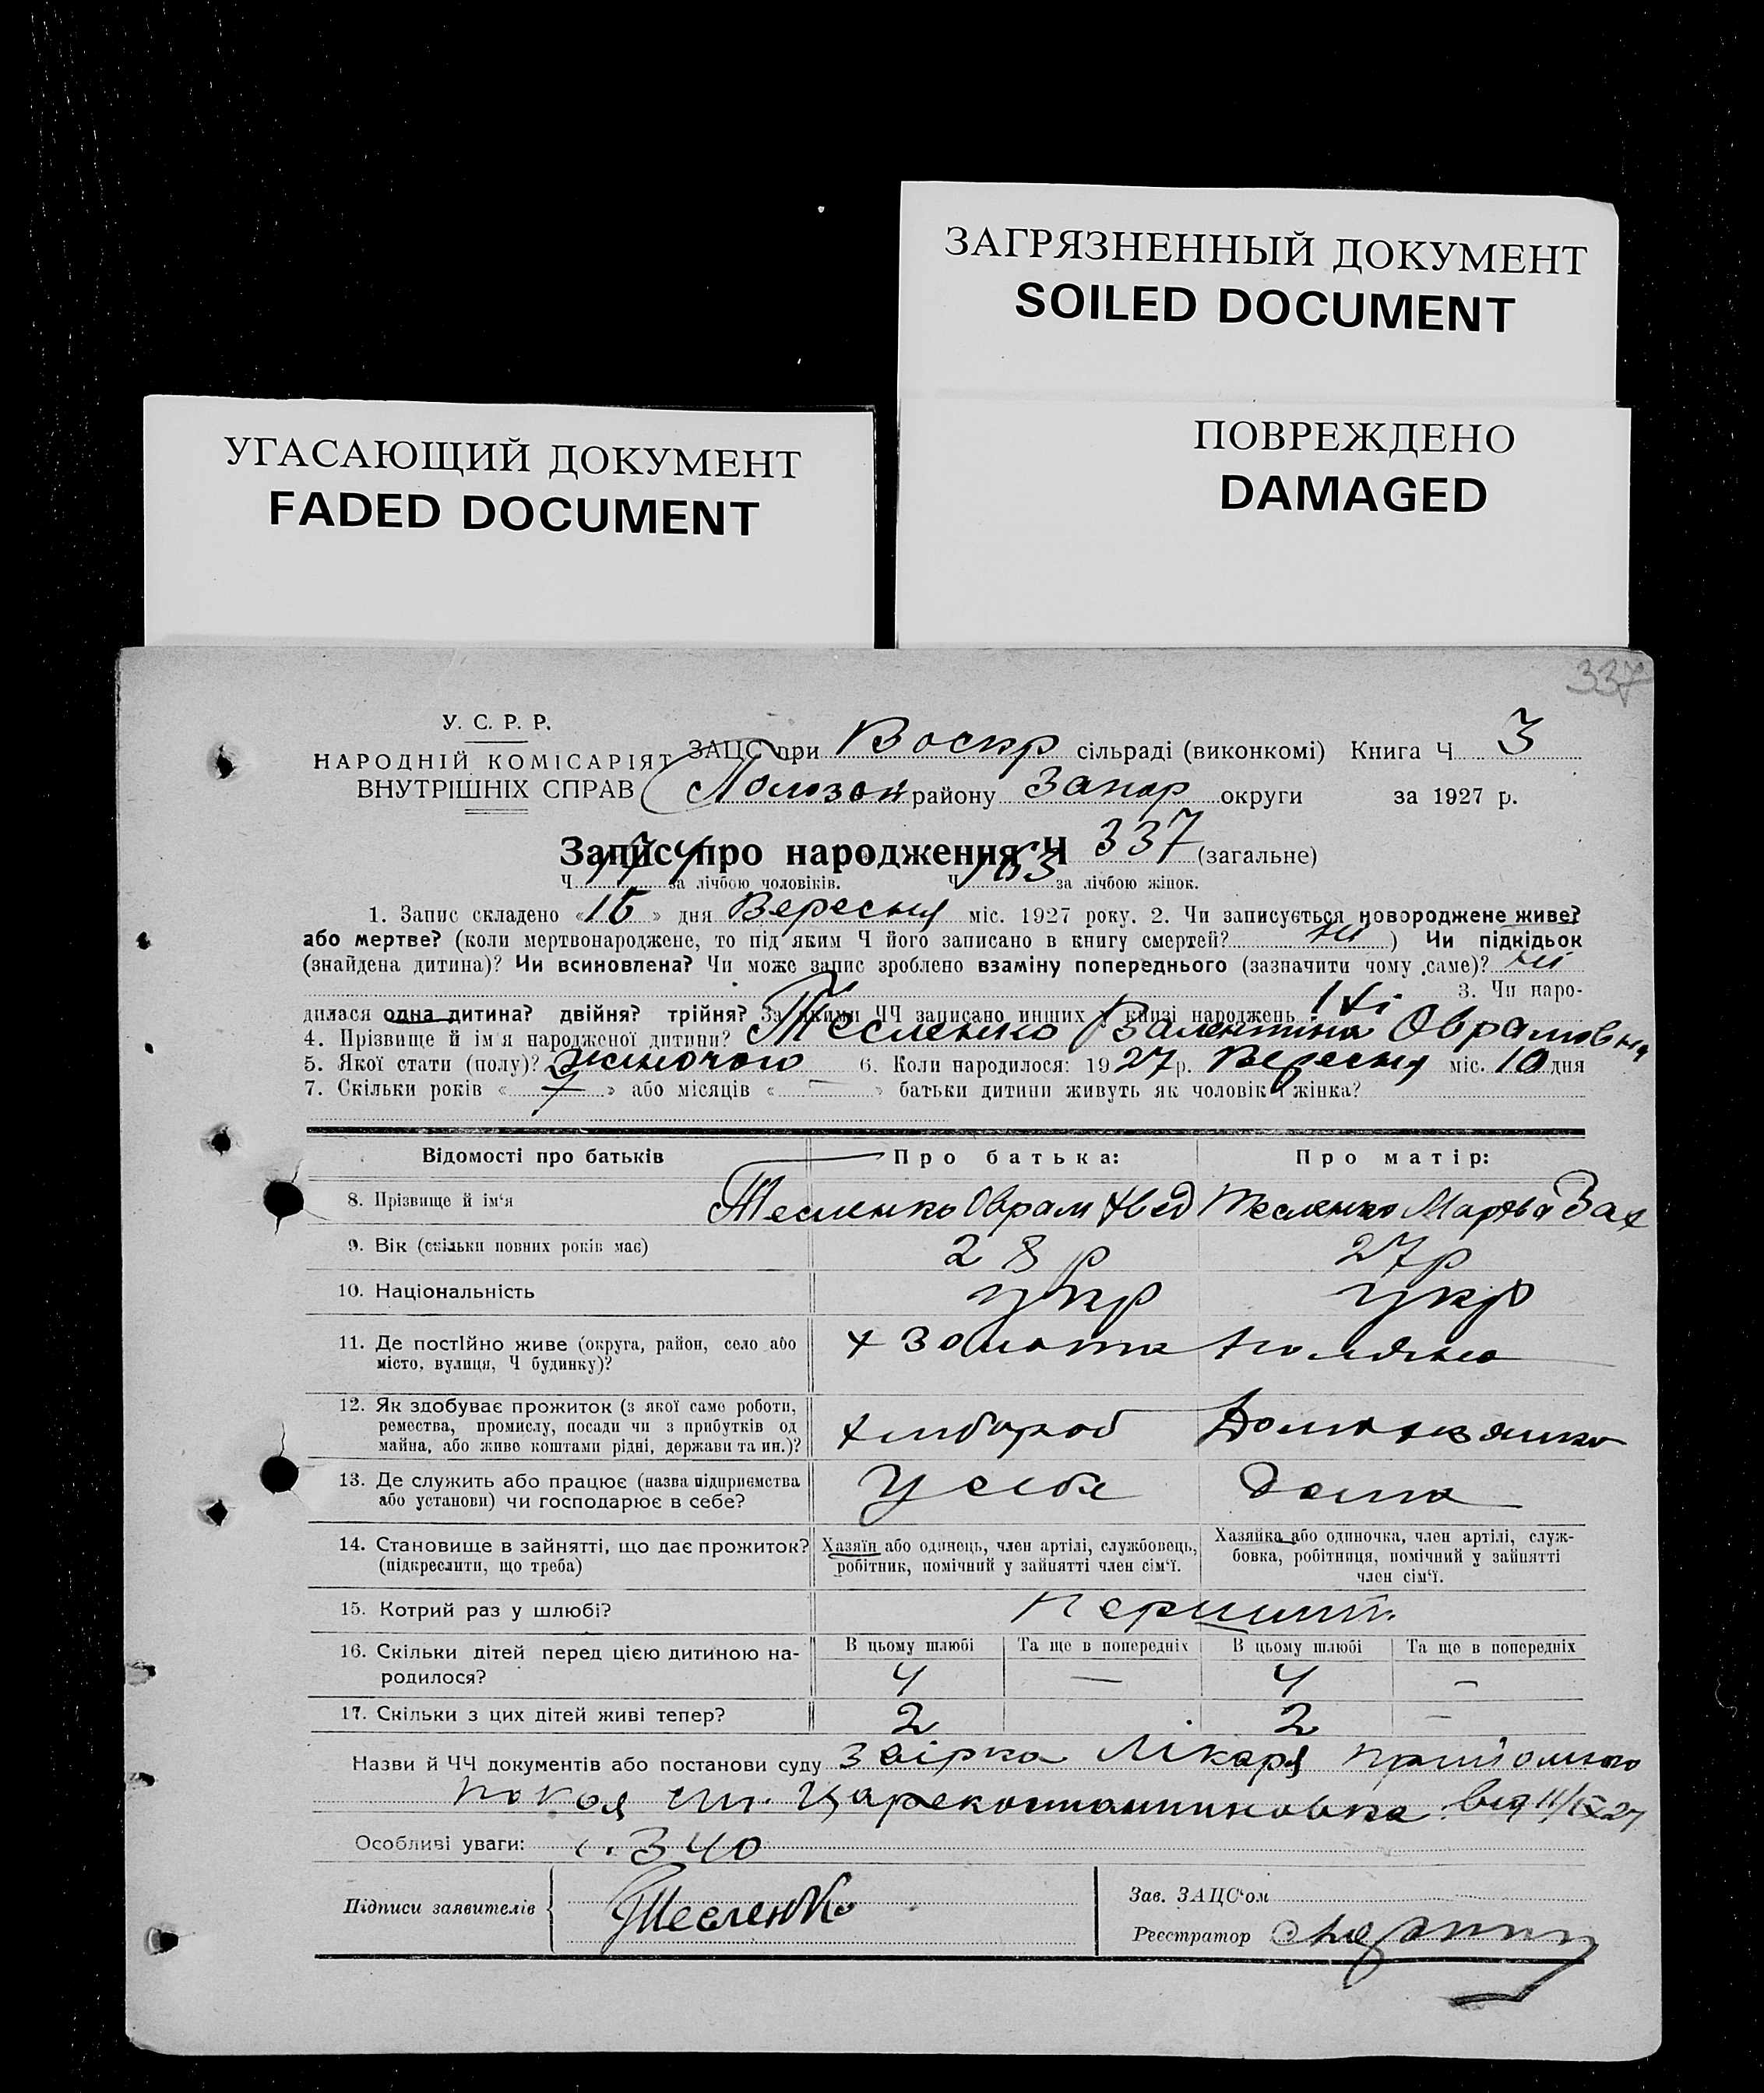 ЗАГРЯЗНЕННЫЙ ДОКУМЕНТ
SOILED DOCUMENT
УГАСАЮЩИЙ ДОКУМЕНТ
FADED DOCUMENT
ПОВРЕЖДЕНО
DAMAGED
337
У. С. Р. Р.
НАРОДНІЙ КОМІСАРІЯТ
ВНУТРІШНІХ СПРАВ
ЗАЦС при Воскр сільраді (виконкомі) Книга Ч. 3
району Запор округи за 1927 р.
Запис про народження Ч 337 (загальне)
Ч 174 за лічбою чоловіків. Ч 163 за лічбою жінок.
1. Запис складено «15» дня Вересня міс. 1927 року. 2. Чи записується новороджене живе?
або мертве? (коли мертвонароджене, то під яким Ч його записано в книгу смертей? ні) Чи підкідьок
(знайдена дитина)? Чи всиновлена? Чи може запис зроблено взаміну попереднього (зазначити чому саме)? ні
3. Чи наро-
дилася одна дитина? двійня? трійня? За якими ЧЧ записано инших у книзі народжень
4. Прізвище й ім'я народженої дитини? Тесленко Валентина Оврамовна
5. Якої стати (полу)? жиночого 6. Коли народилося: 1927 р. Вересня міс. 10 дня
7. Скільки років « 7 » або місяців « — » батьки дитини живуть як чоловік і жінка?
Відомості про батьків Про батька: Про матір:
8. Прізвище й ім'я Тесленко Оврам Тесленко Зах
9. Вік (скільки повних років має) 28 р 27 р
10. Національність укр укр
11. Де постійно живе (округа, район, село або х Золота поляна
місто, вулиця, Ч будинку)?
12. Як здобуває прожиток (з якої саме роботи,
ремества, промислу, посади чи з прибутків од хлибороб
майна, або живе коштами рідні, держави та ин.)?
13. Де служить або працює (назва підприємства У себя дома
або установи) чи господарює в себе?
14. Становище в зайнятті, що дає прожиток? Хазяїн або одинець, член артілі, службовець, Хазяйка або одиночка, член артілі, служ-
(підкреслити, що треба) робітник, помічний у зайнятті член сім'ї. бовка, робітниця, помічний у зайнятті
член сім'ї.
15. Котрий раз у шлюбі?
16. Скільки дітей перед цією дитиною на- В цьому шлюбі Та ще в попередніх В цьому шлюбі Та ще в попередніх
родилося? 4 — 4 —
17. Скільки з цих дітей живі тепер? 2 2 —
Назви й ЧЧ документів або постанови суду Лікаря
покоя ст. від 11/IX 27
Особливі уваги: 340
Підписи заявителів Тесленко
Зав. ЗАЦС'ом
Реєстратор